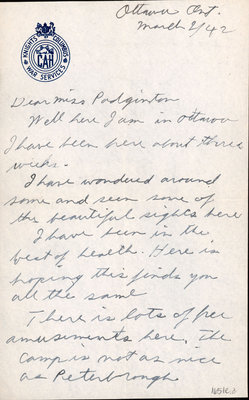 KNIGHTS OF COLUMBUS
CAH
WAR SERVICES
Ottawa Ont.
March 2/42
Dear Miss Padginton
Well here I am in ottawa
I have been here about three
weeks.
I have wondered around
some and seen some of
the beautiful sights here
I have been in the
best of health. Here is
hoping this finds you
all the same
There is lots of free
amusements here. The
camp is not as nice
as Peterbrough